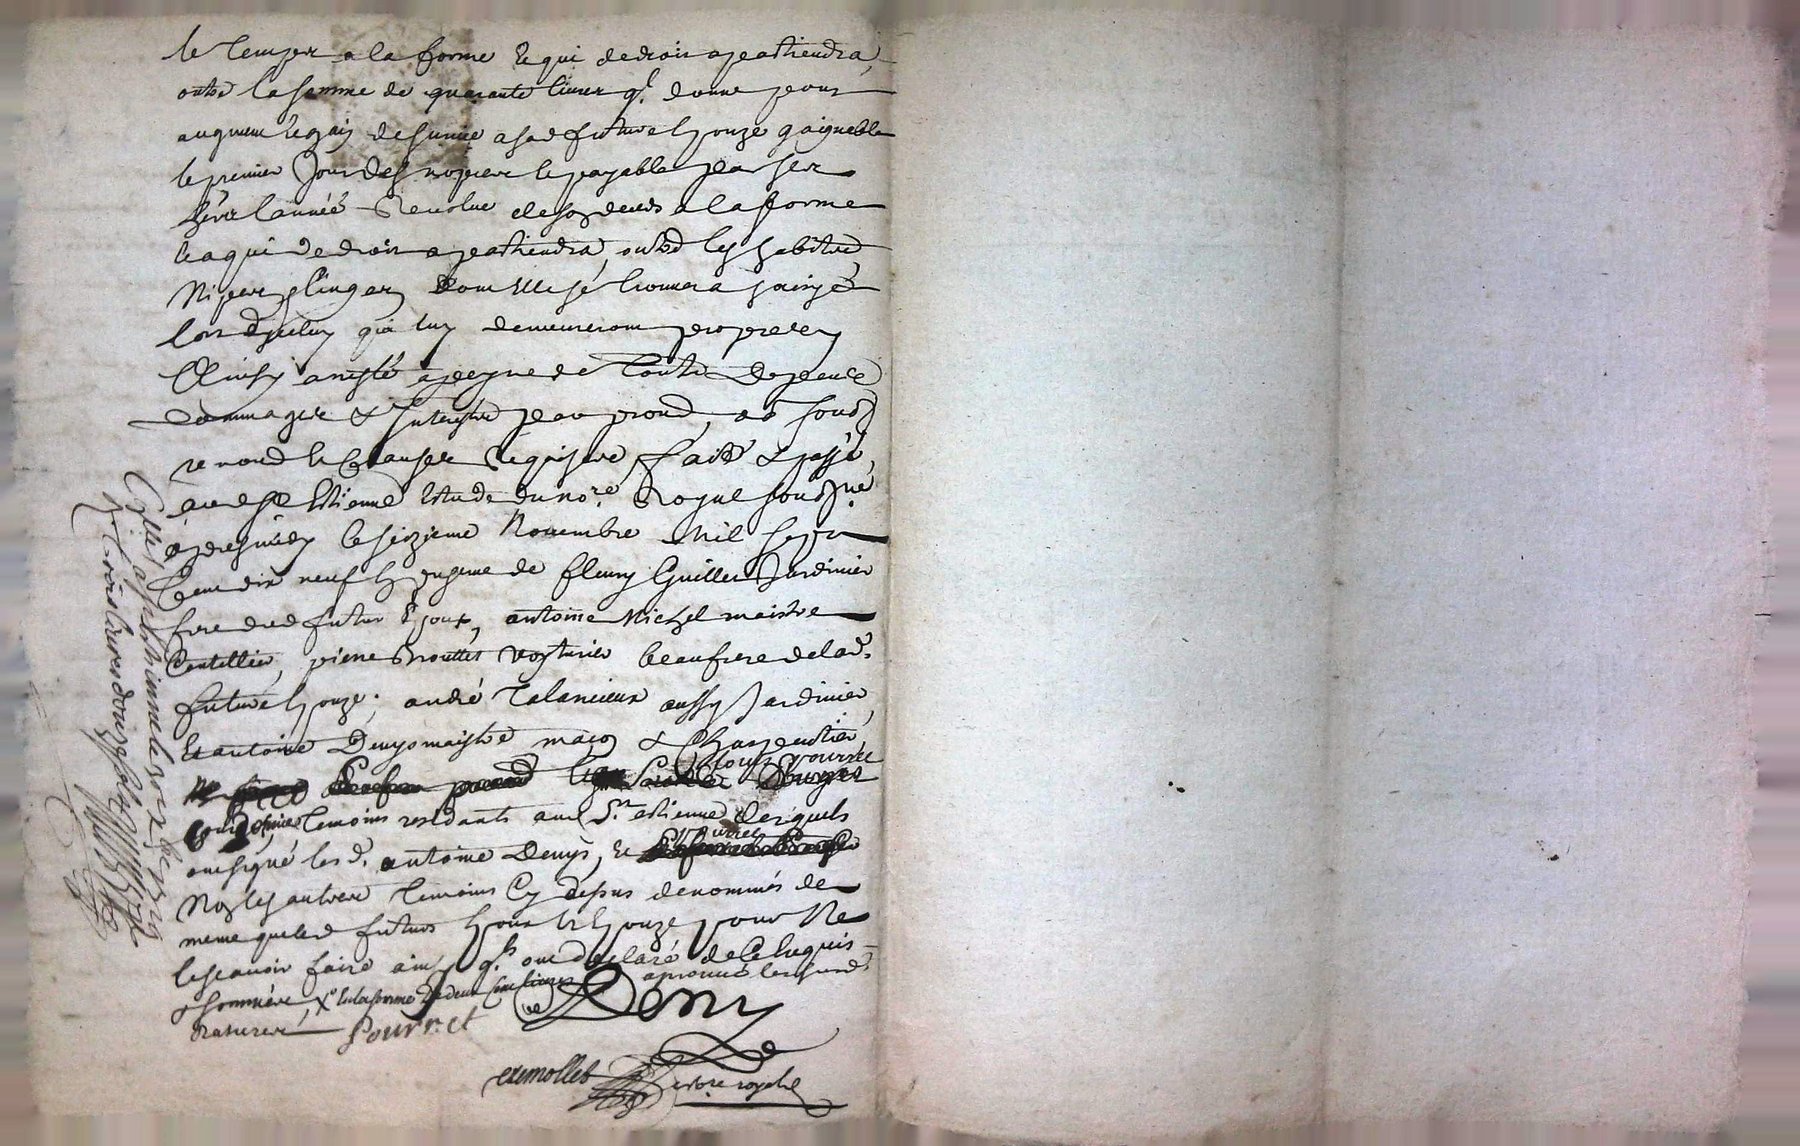 le temps a la forme & qui de droit apartiendra,
outre la somme de quarante livres q.l donne pour
augment & gain de survie a sad. future Epouze gaignable
le premier jour des nopces & payable par ses
hers l'année Revolue de son deceds a la forme
& a qui de droit apartiendra, outre les habitzs
Nipes & linges dont Elle sé trouvera saisye
lors d'jceluy qui luy demeureront propres, &
Ainsy aresté a peyne de toute depence
dommages & Interests par promd, ad. soub.
renond. & Clauses Requises, fait & passé,
aud. St Estienne Estude du no.re Royal soubz.né
apres midy le seizieme Novembre Mil sept
Cent dix neuf En presence de fleury Guillet Jardinier
frere dud. futur Epoux, antoine Michel maistre
Coutellier, pierre voyturier beaufrere de lad.
future Epouze, andré Talancieux aussy Jardinier,
Et antoine Denys maistre maçon & Charpentier
Louis pourret
temoins residants aud. St. estienne desquels
ont signé lesd. antoine Denys, & pourret
Non les autres temoins Cy dessus denommés de
meme que lesd. futurs Epoux & Epouze pour Ne
le scavoir faire ainsy q.ls ont declaré de Ce Enquis
& sommés, X.e la somme de deux Cent livres aprouvé les susd.
Ratures
Pourret
Deny
no.re royal
Con.lé a St Estienne le
R. trois livres douze sols